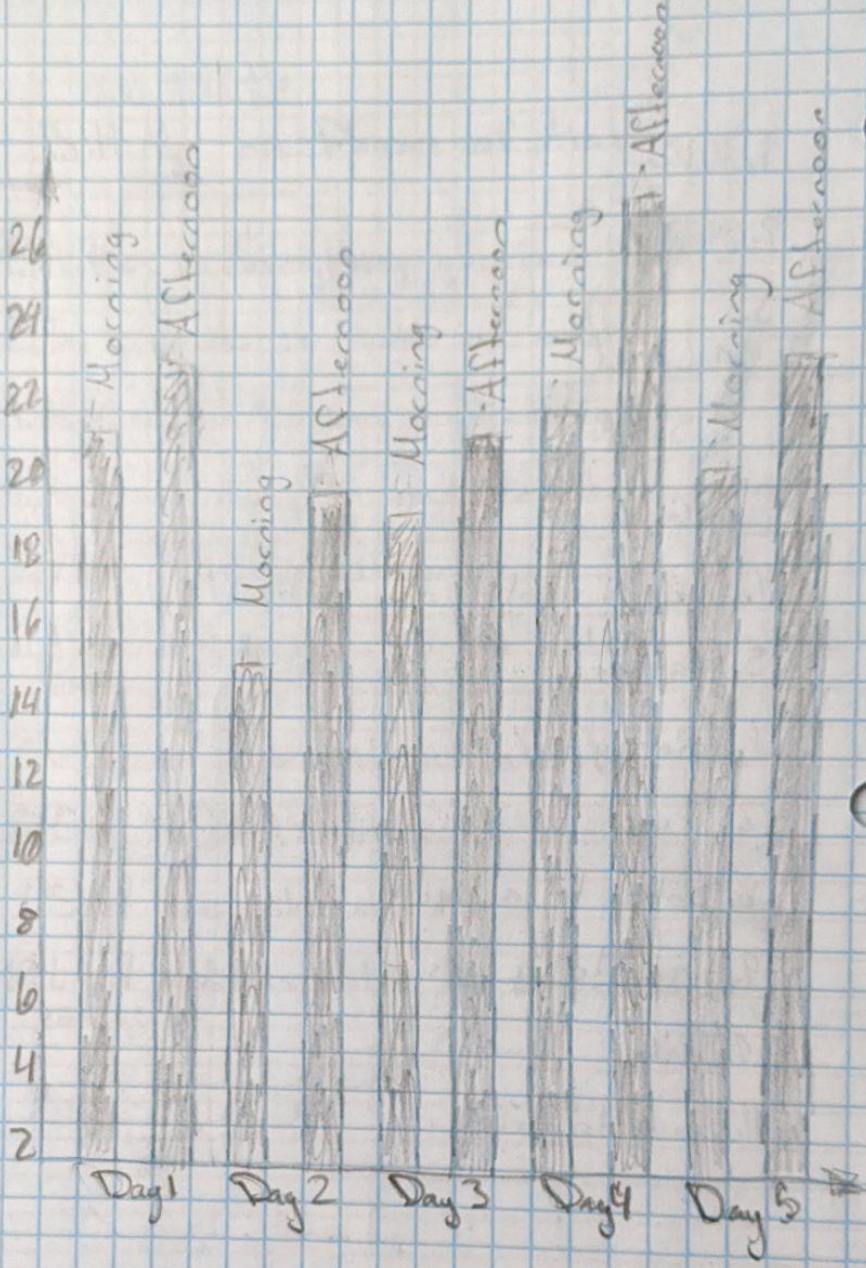 26
24
22
20
18
16
14
12
10
8
6
4
2
Morning
Afternoon
Morning
Afternoon
Morning
Afternoon
Morning
Afternoon
Morning
Afternoon
Day 1
Day 2
Day 3
Day 4
Day 5